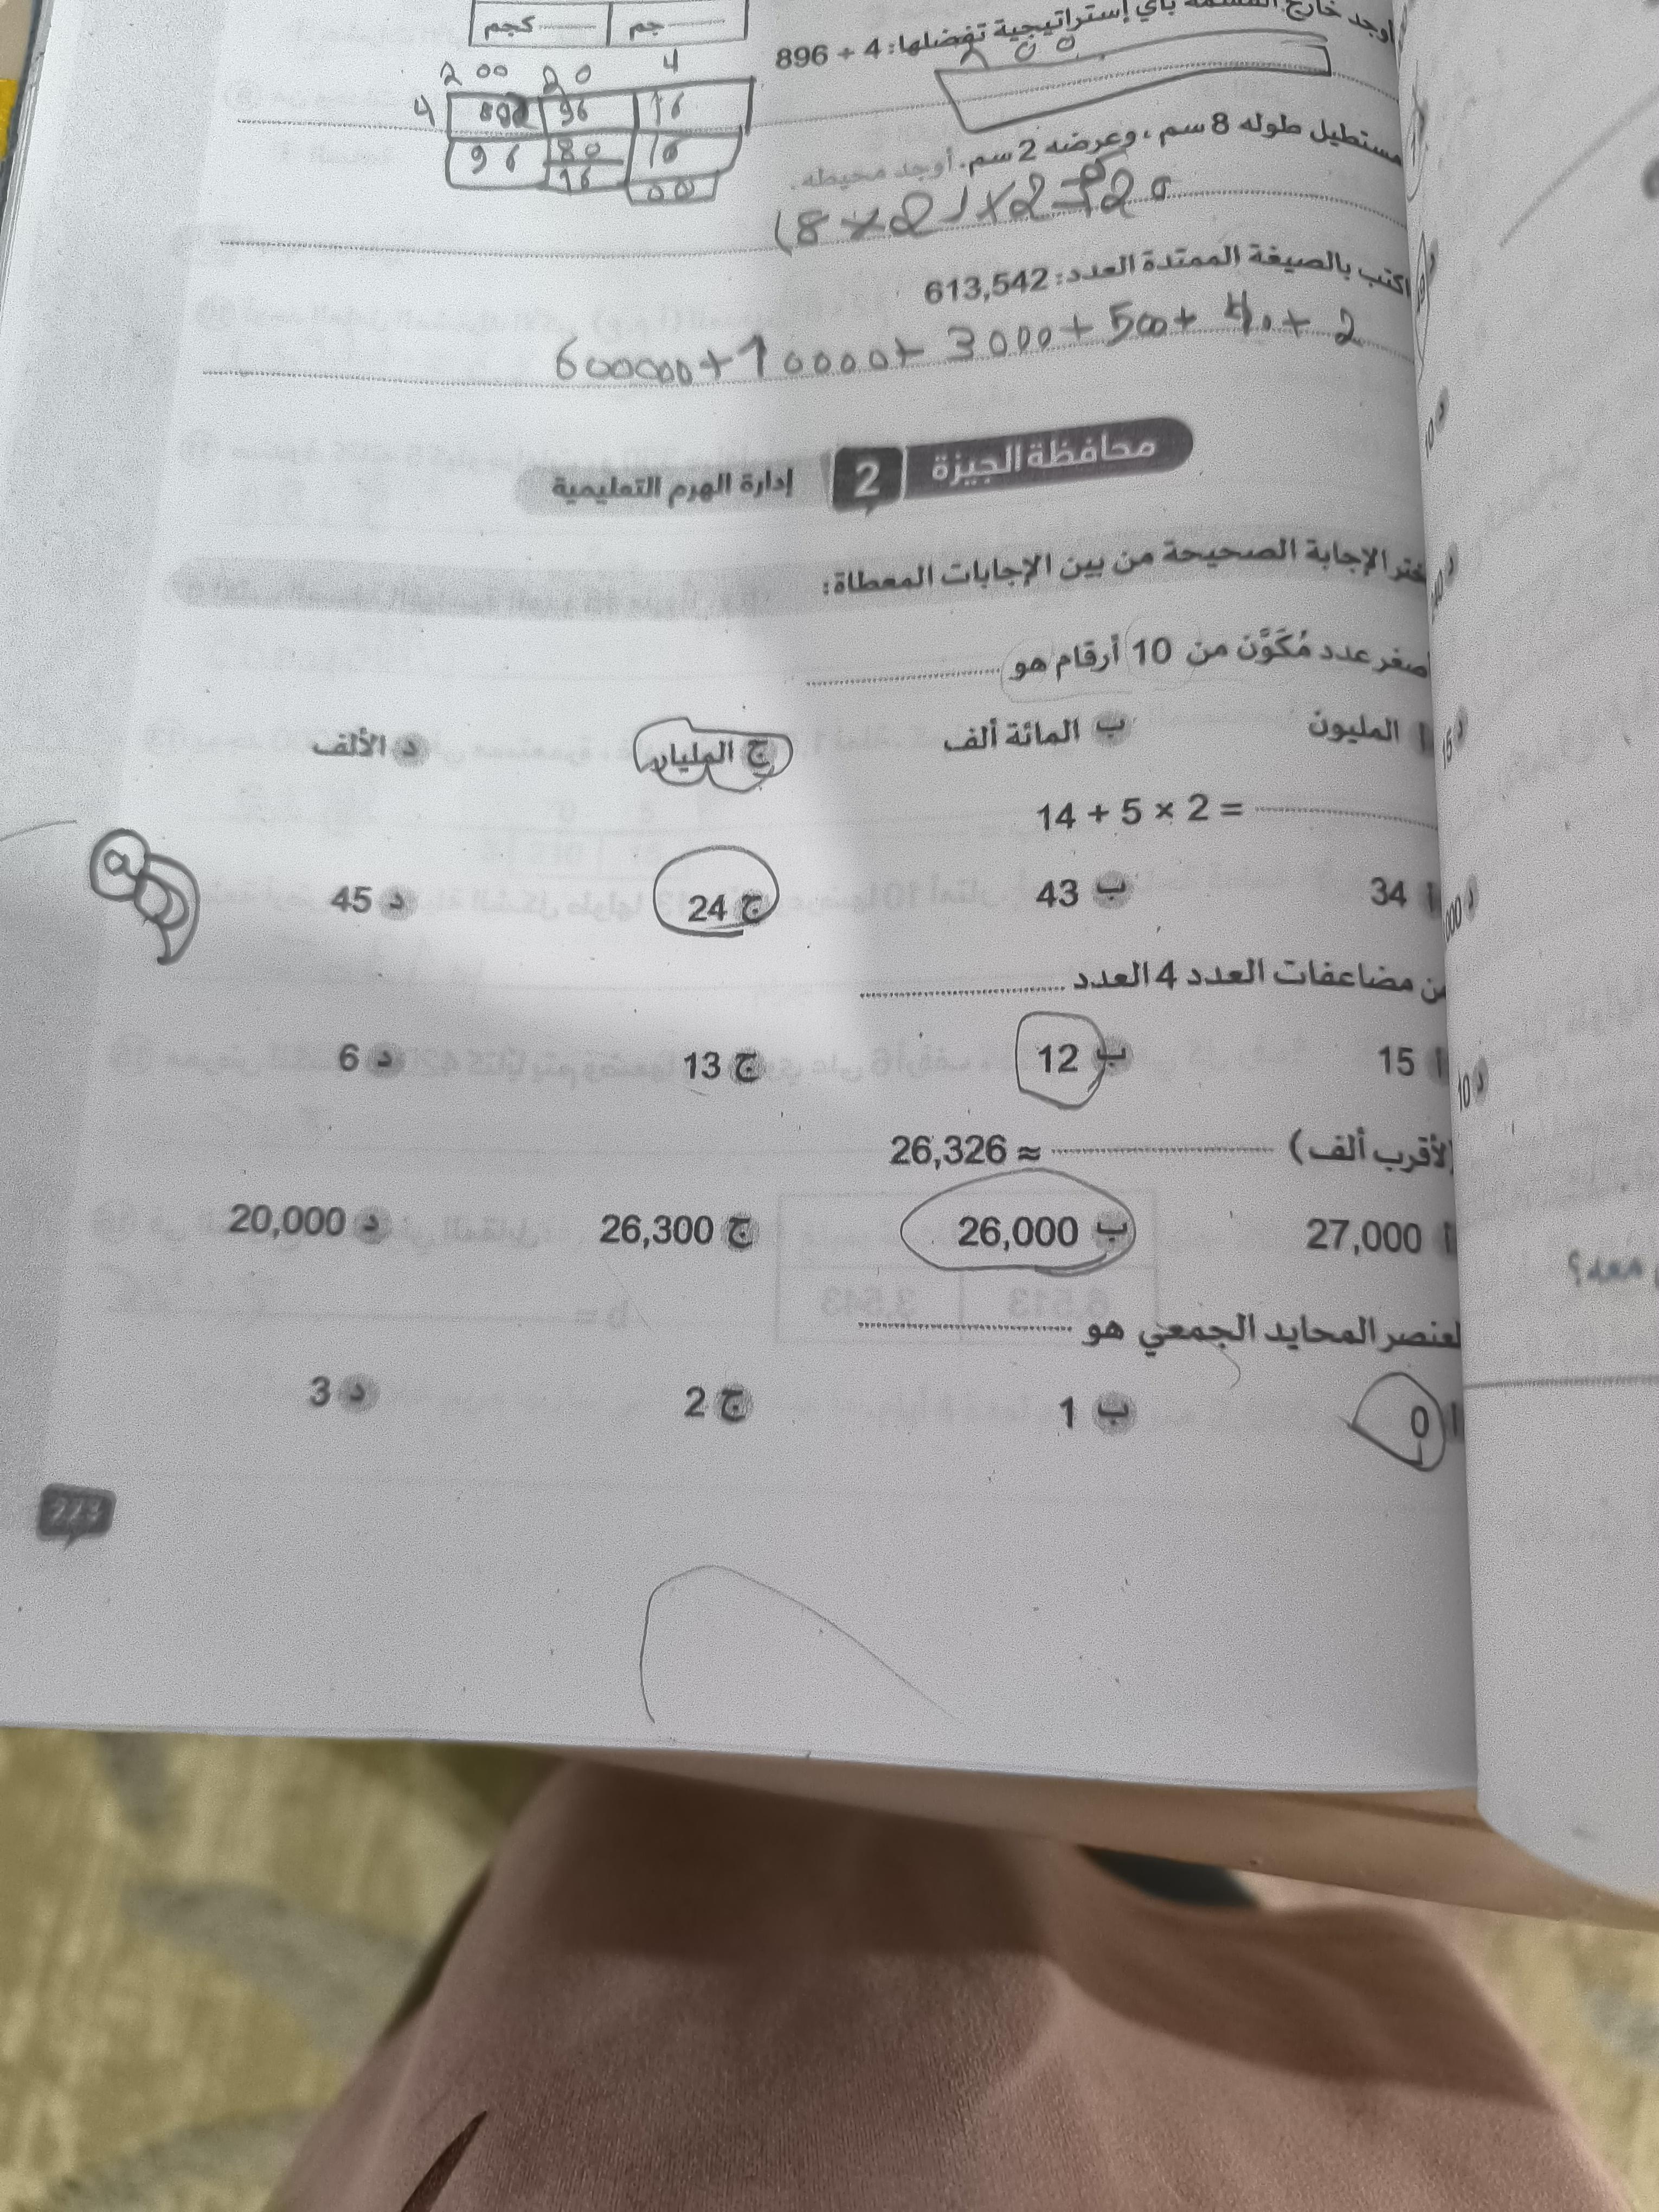 جم كجم
أوجد خارج القسمة بأي إستراتيجية تفضلها: 896 ÷ 4
200 20 4
4 96 16
96 80 16
16 00
مستطيل طوله 8 سم، وعرضه 2 سم. أوجد محيطه.
اكتب بالصيغة الممتدة العدد: 613,542
600000+10000+3000+500+40+2
محافظة الجيزة 2 إدارة الهرم التعليمية
ختر الإجابة الصحيحة من بين الإجابات المعطاة:
صغر عدد مُكَوَّن من 10 أرقام هو
أ المليون ب المائة ألف ج المليار د الألف
14 + 5 × 2 =
أ 34 ب 43 ج 24 د 45
من مضاعفات العدد 4 العدد
أ 15 ب 12 ج 13 د 6
26,326 ≈ (لأقرب ألف)
أ 27,000 ب 26,000 ج 26,300 د 20,000
لعنصر المحايد الجمعي هو
أ 0 ب 1 ج 2 د 3